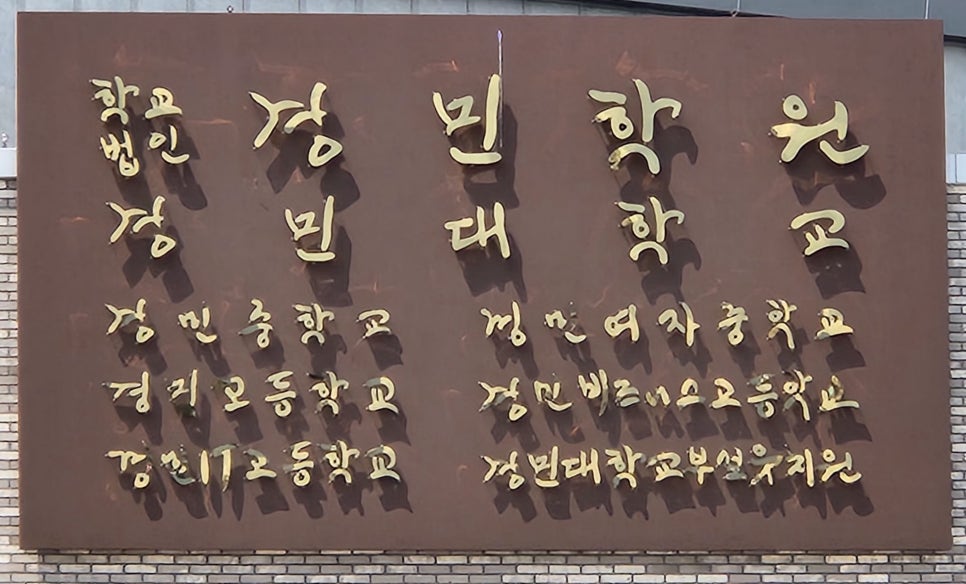 학교법인 경민학원
경민대학교
경민중학교
경민여자중학교
경민고등학교
경민비즈니스고등학교
경민IT고등학교
경민대학교부설유치원